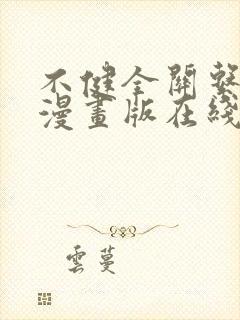 不健全關繫
漫畫版在綫
雲蔓